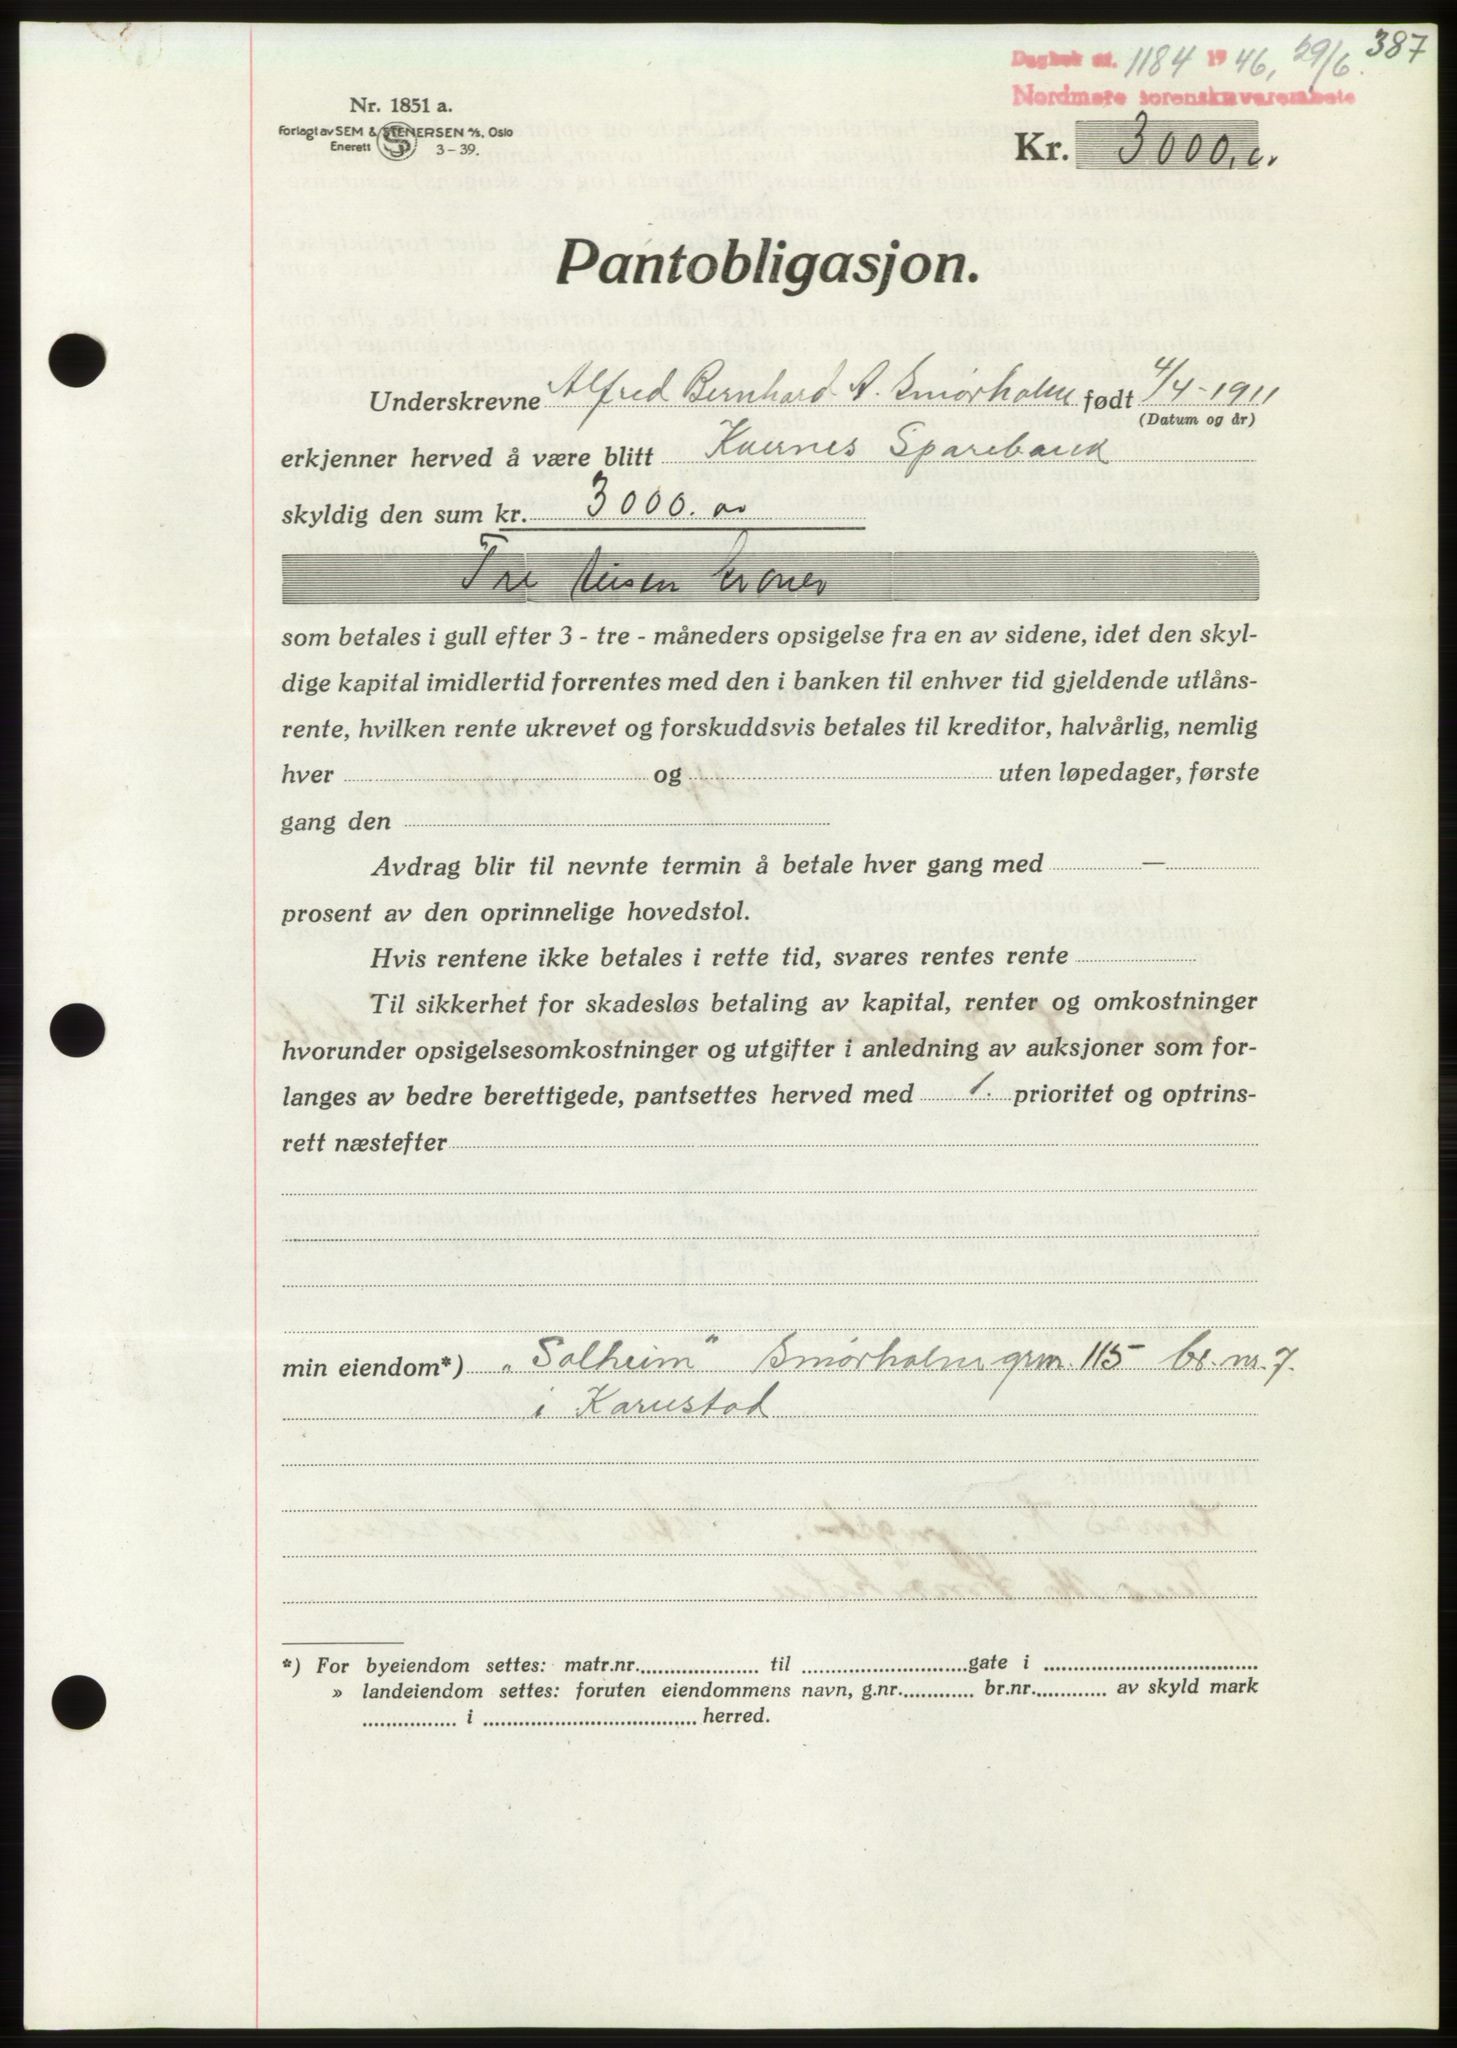 387
Dagbok nr. 1184 1946, 29/6.
Nordmøre sorenskriverembete
Nr. 1851 a.
Forlagt av SEM & STENERSEN A/S, Oslo
Enerett 3–39.
Kr. 3000,
Pantobligasjon.
Underskrevne Alfred Bernhard A. Smørholm født 4/4-1911
(Datum og år)
erkjenner herved å være blitt Kvernes Sparebank
skyldig den sum kr. 3000.
Tre tusen kroner
som betales i gull efter 3 - tre - måneders opsigelse fra en av sidene, idet den skyl-
dige kapital imidlertid forrentes med den i banken til enhver tid gjeldende utlåns-
rente, hvilken rente ukrevet og forskuddsvis betales til kreditor, halvårlig, nemlig
hver og uten løpedager, første
gang den
Avdrag blir til nevnte termin å betale hver gang med —
prosent av den oprinnelige hovedstol.
Hvis rentene ikke betales i rette tid, svares rentes rente
Til sikkerhet for skadesløs betaling av kapital, renter og omkostninger
hvorunder opsigelsesomkostninger og utgifter i anledning av auksjoner som for-
langes av bedre berettigede, pantsettes herved med 1. prioritet og optrins-
rett næstefter
min eiendom*) „Solheim" Smørholm grn. 115 br. nr. 7.
i
*) For byeiendom settes: matr.nr. til gate i
» landeiendom settes: foruten eiendommens navn, g.nr. br.nr. av skyld mark
i herred.